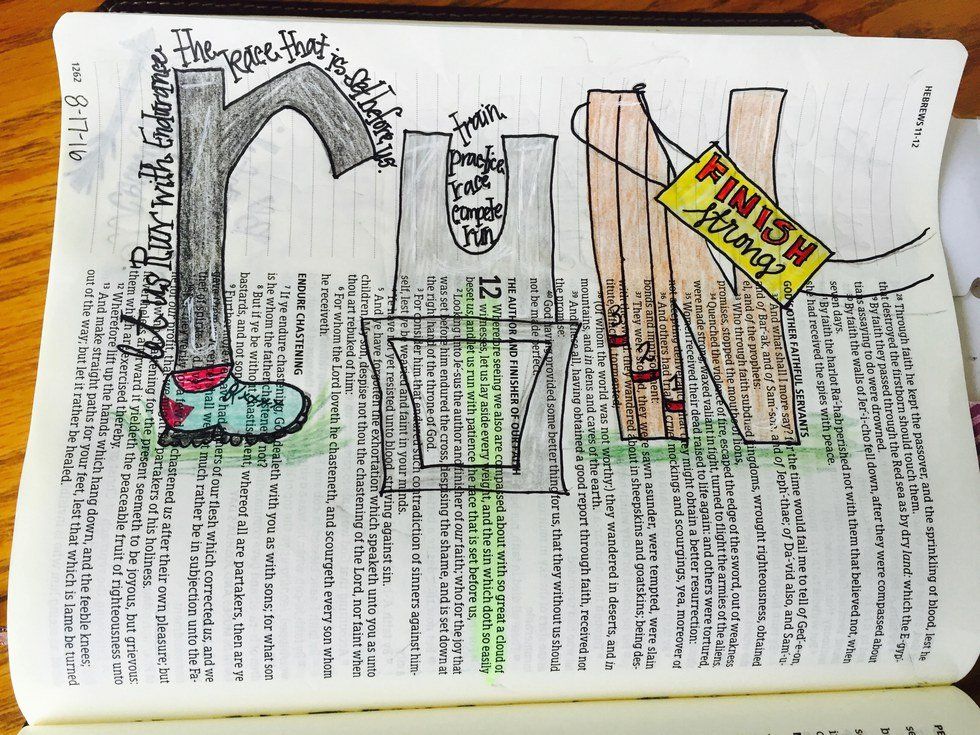 HEBREWS 11-12
28 Through faith he kept the passover, and the sprinkling of blood, lest he
that destroyed the firstborn should touch them.
29 By faith they passed through the Red sea as by dry land: which the E-gyp-
tians assaying to do were drowned.
30 By faith the walls of Jer-i-cho fell down, after they were compassed about
seven days.
31 By faith the harlot Ra-hab perished not with them that believed not, when
she had received the spies with peace.
OTHER FAITHFUL SERVANTS
32 And what shall I more say? for the time would fail me to tell of Ged-e-on,
and of Bar-ak, and of Sam-son, and of Jeph-thae; of Da-vid also, and Sam-u-
el, and of the prophets:
33 Who through faith subdued kingdoms, wrought righteousness, obtained
promises, stopped the mouths of lions,
34 Quenched the violence of fire, escaped the edge of the sword, out of weakness
were made strong, waxed valiant in fight, turned to flight the armies of the aliens
35 Women received their dead raised to life again: and others were tortured,
not accepting deliverance; that they might obtain a better resurrection:
36 And others had trial of mockings and scourgings, yea, moreover of
bonds and imprisonment:
37 They were stoned, they were sawn asunder, were tempted, were slain
with they wandered about in sheepskins and goatskins; being des-
titute,
38 Of whom the world was not worthy:) they wandered in deserts, and in
mountains, and in dens and caves of the earth.
39 And these all, having obtained a good report through faith, received not
the promise:
40 God having provided some better thing for us, that they without us should
not be made perfect.
THE AUTHOR AND FINISHER OF OUR FAITH
12 Wherefore seeing we also are compassed about with so great a cloud of
witnesses, let us lay aside every weight, and the sin which doth so easily
beset us, and let us run with patience the race that is set before us,
2 Looking unto Je-sus the author and finisher of our faith; who for the joy that
was set before him endured the cross, despising the shame, and is set down at
the right hand of the throne of God.
3 For consider him that endured such contradiction of sinners against him-
self, lest ye be wearied and faint in your minds.
4 Ye have not yet resisted unto blood, striving against sin.
5 And ye have forgotten the exhortation which speaketh unto you as unto
children, My son, despise not thou the chastening of the Lord, nor faint when
thou art rebuked of him:
6 For whom the Lord loveth he chasteneth, and scourgeth every son whom
he receiveth.
ENDURE CHASTENING
7 If ye endure chastening, God dealeth with you as with sons; for what son
is he whom the father chasteneth not?
8 But if ye be without chastisement, whereof all are partakers, then are ye
bastards, and not sons.
9 Furthermore we have had fathers of our flesh which corrected us, and we
shall we not much rather be in subjection unto the Fa-
ther of spirits,
chastened us after their own pleasure; but
partakers of his holiness.
chastening for the present seemeth to be joyous, but grievous:
afterward it yieldeth the peaceable fruit of righteousness unto
them which are exercised thereby.
12 Wherefore lift up the hands which hang down, and the feeble knees;
13 And make straight paths for your feet, lest that which is lame be turned
out of the way; but let it rather be healed.
1262
8-17-16
Let us Run with Endurance
the Race that is set before us.
run
train
practice
race
compete
run
FINISH
strong